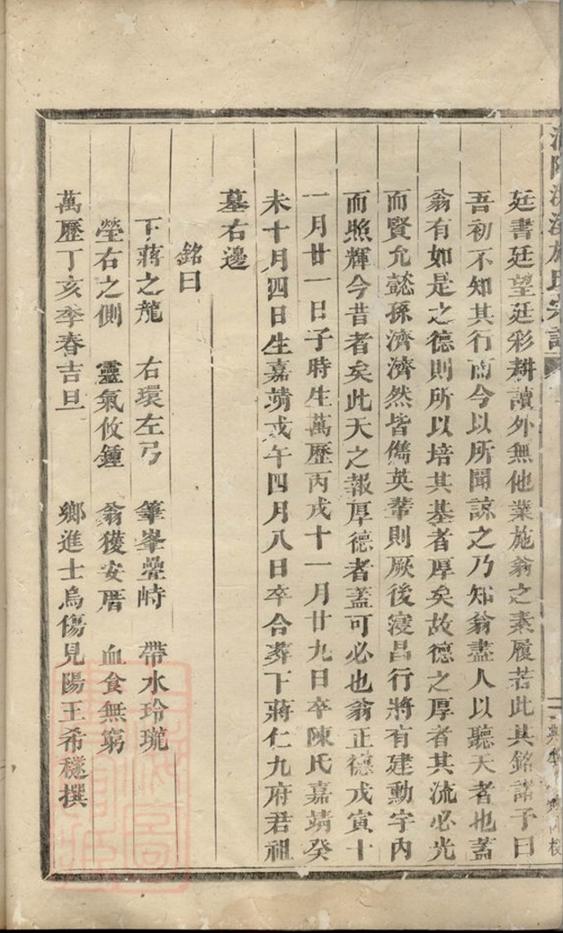 廷書廷望廷彩耕讀外無他業施翁之素履若此其銘諸予曰
吾初不知其行而今以所聞諒之乃知翁盡人以聽天者也蓋
翁有如是之德則所以培其基者厚矣故德之厚者其流必光
而賢允懿孫濟濟然皆儁英輩則厥後寖昌行將有建勳宇内
而照輝今昔者矣此天之報厚德者蓋可必也翁正德戊寅十
一月廿一日子時生萬歷丙戌十一月廿九日卒陳氏嘉靖癸
未十月四日生嘉靖戊午四月八日卒合葬下蔣仁九府君祖
墓右邊
銘曰
下蔣之龍 右環左弓 筆峯疊峙 帶水玲瓏
塋右之側 靈氣攸鍾 翁獲安厝 血食無窮
萬歷丁亥季春吉旦 鄉進士烏傷見陽王希穟撰